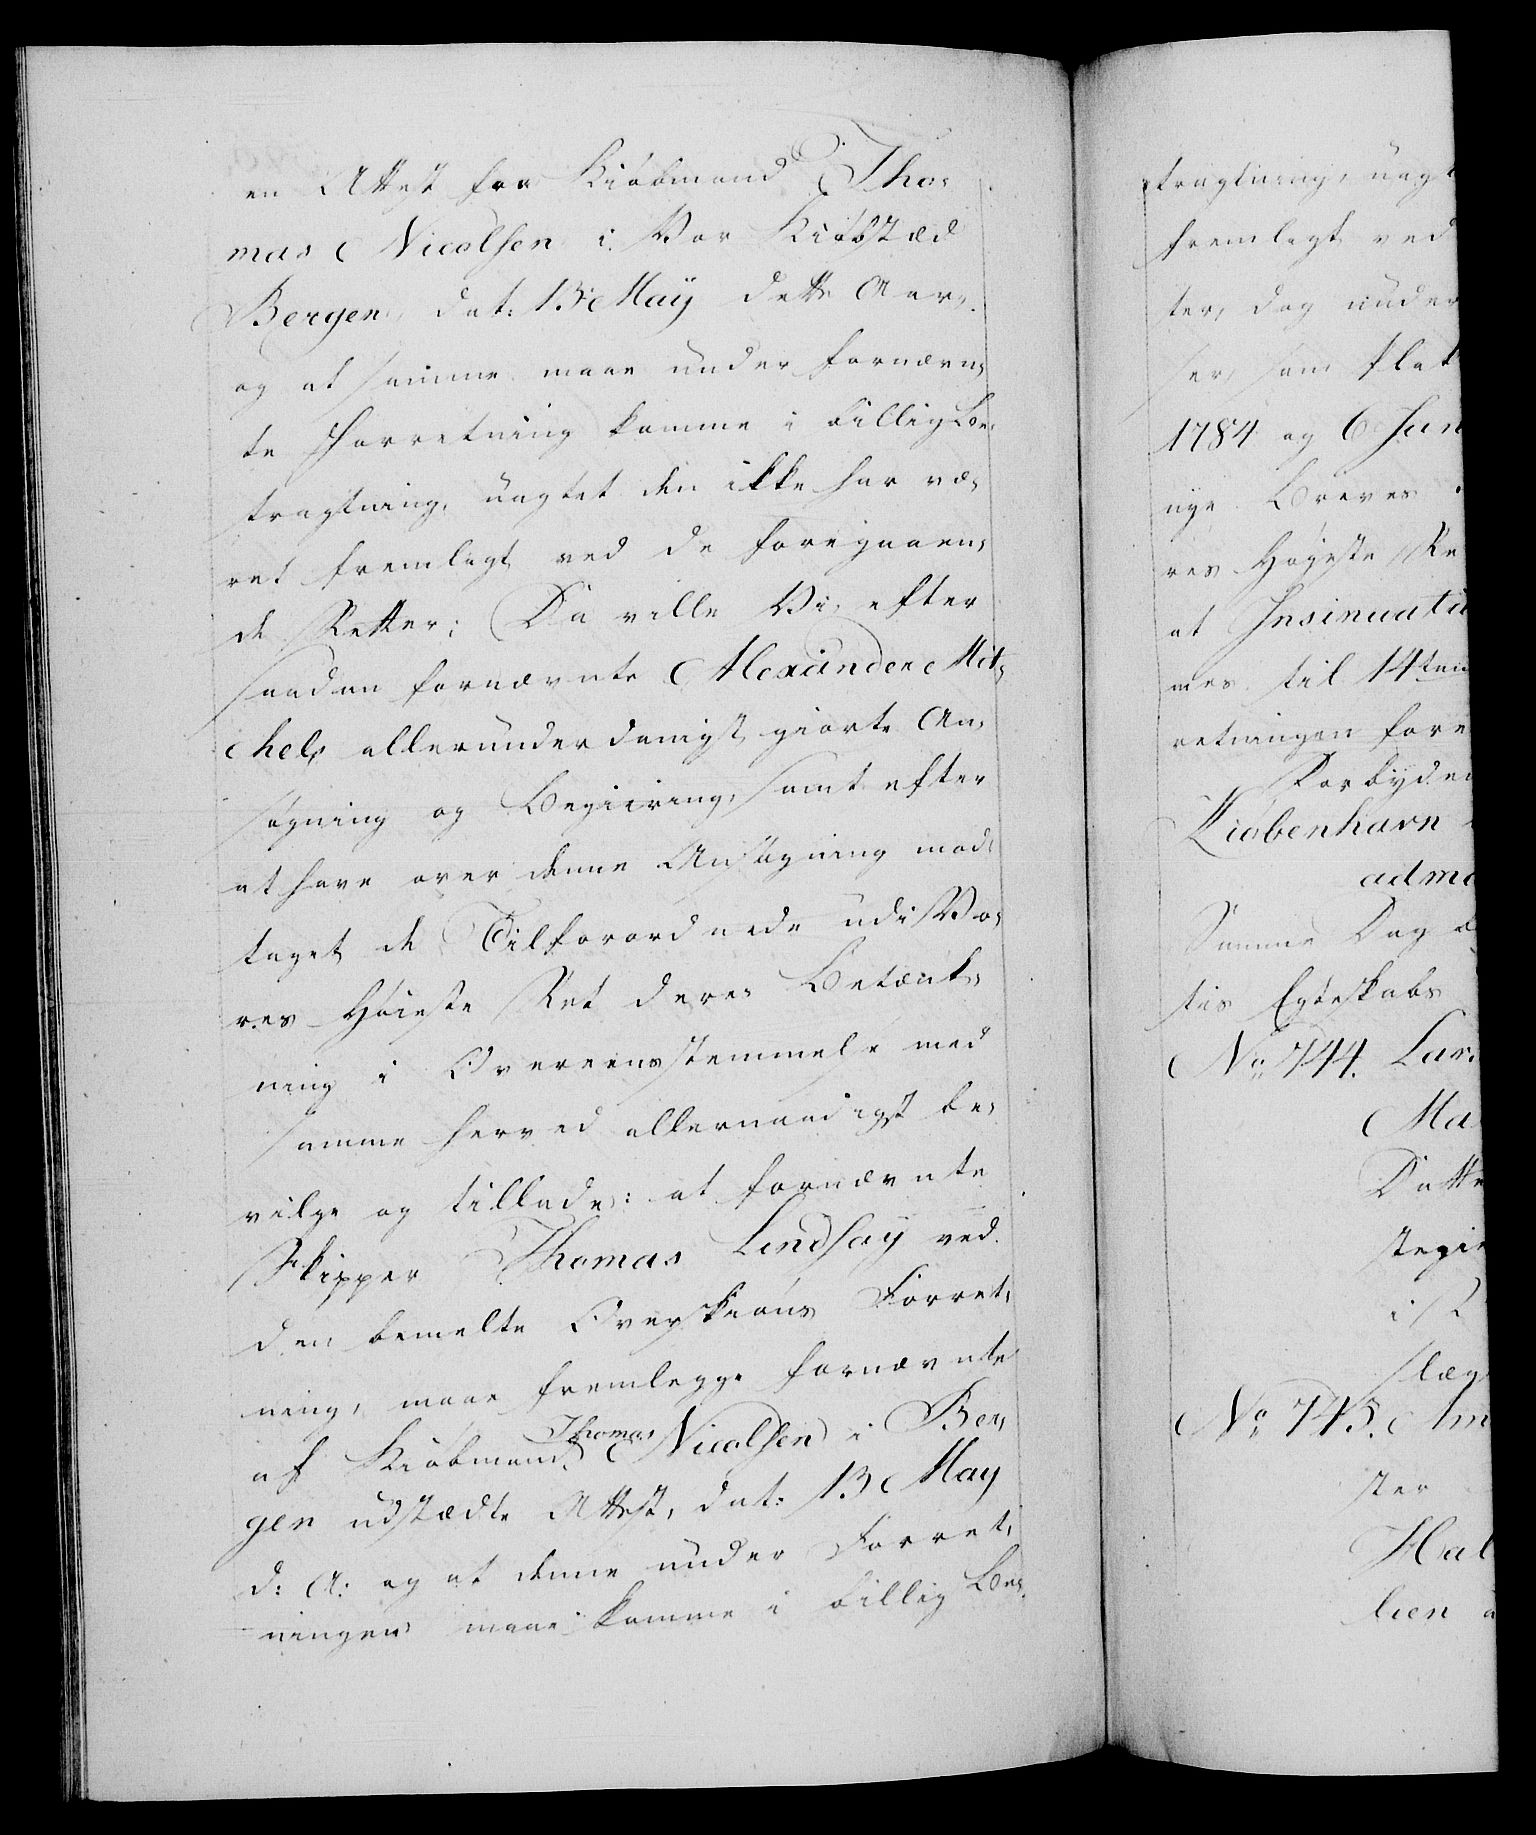 en Attest fra Kiøbmand Tho-
mas Nicolsen i Vor Kiøbstæd
Bergen, dat: 13 Maij dette Aar,
og at samme maae under fornævn-
te Forretning komme i billig Be-
tragtning, uagtet den ikke har væ-
ret fremlagt ved de foregaaen-
de Retter; Da ville Vi, efter
saadan fornævnte Alexander Mit-
chels allerunderdanigst giorte An-
søgning og Begiering, samt efter
at have over denne Ansøgning mod-
taget de Tilforordnede udi Vo-
res Høieste Ret deres Betænk-
ning i Overeensstemmelse med
samme herved allernaadigst be-
vilge og tillade: at fornævnte
Skipper Thomas Lindsay ved
den bemelte Overskiøns Forret-
ning, maae fremlegge fornævnte
af Kiøbmand Thomas Nicolsen i Ber-
gen udstædte Attest, dat: 13 May
d: A: og at denne under Forret-
ningen maae komme i billig Be-
tragtning, uagt
fremlagt ved
ter, dog under
ser, som Plak
1784 og 6 Jun
nye Breves
res Høyeste Re
at Insinuati
mes til 14ten
retningen fore
Forbyden
Kiøbenhavn
ad ma
Samme Dag
tis Egteskabs
No 744. Lar
Ma
Datte
stegie
i
slæg
No 745. Am
ster
Hal
lien